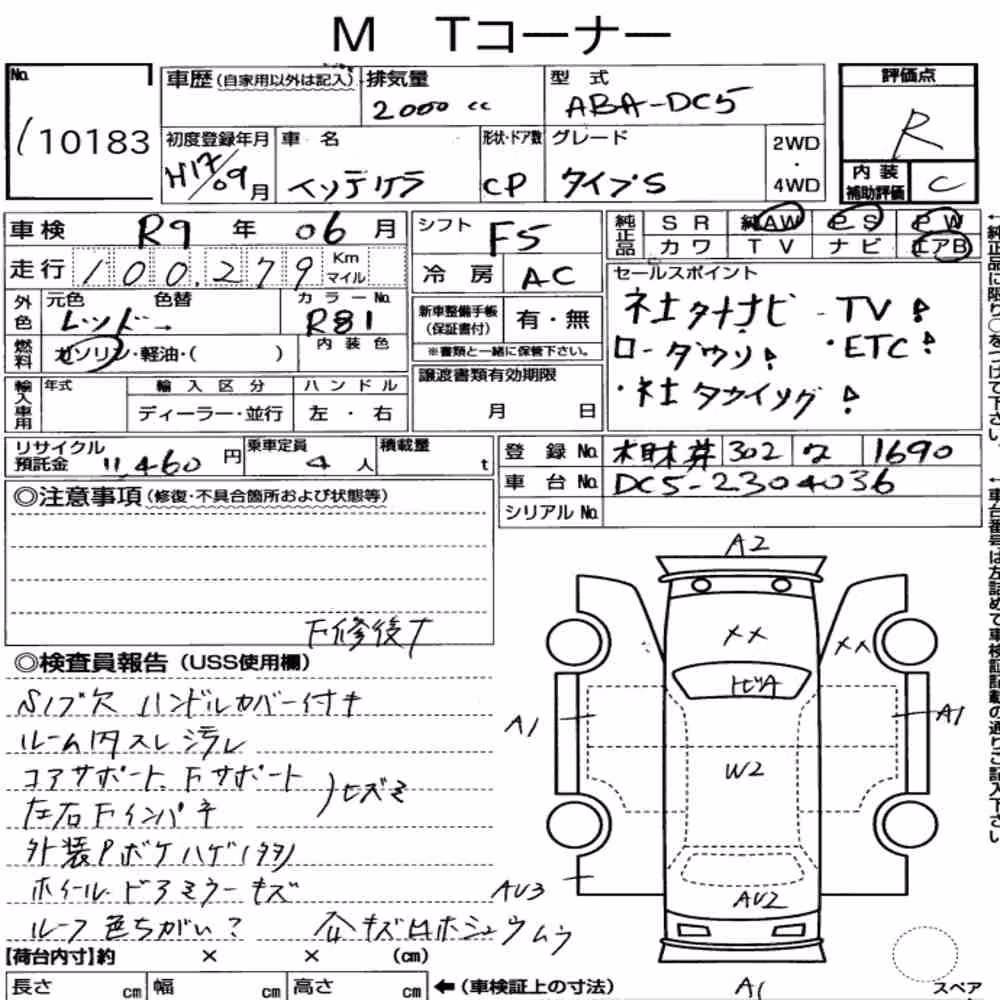 M Tコーナー
No. 110183
車歴(自家用以外は記入) 排気量 2000 cc 型式 ABA-DC5
初度登録年月 H17/09月 車名 インテグラ 形状・ドア数 CP グレード タイプS 2WD・4WD
評価点 R
内装補助評価 C
車検 R9 年 06 月
走行 100,279 Km マイル
シフト F5
冷房 AC
純正品 SR 純AW PS PW
カワ TV ナビ エアB
外色 元色 レッド→ 色替 カラーNo. R81
燃料 ガソリン・軽油・( ) 内装色
新車整備手帳(保証書付) 有・無
※書類と一緒に保管下さい。
セールスポイント
社外ナビ・TV!
ローダウン! ・ETC!
輸入車用 年式 輸入区分 ハンドル
ディーラー・並行 左・右
譲渡書類有効期限
月 日
リサイクル預託金 11,460 円 乗車定員 4 人 積載量 t
登録No. 302 な 1690
車台No. DC5-2304036
シリアルNo.
◎注意事項(修復・不具合箇所および状態等)
F修復有
◎検査員報告(USS使用欄)
Sノブ欠 ハンドルカバー付き
ルーム内スレ 汚れ
コアサポート、Fサポート
左右Fインパネ )ヒズミ
外装Pボケ ハゲ(タタ)
ホイール・ドアミラーキズ
ルーフ 色ちがい? 全キズ
A2
XX
XX
トビA
A1
A1
W2
AU3
AU2
A1
【荷台内寸】約 × × (cm)
長さ cm 幅 cm 高さ cm ←(車検証上の寸法)
スペア
←純正品に限り○をつけて下さい。
←車台番号は左詰めで車検証記載の通りご記入下さい